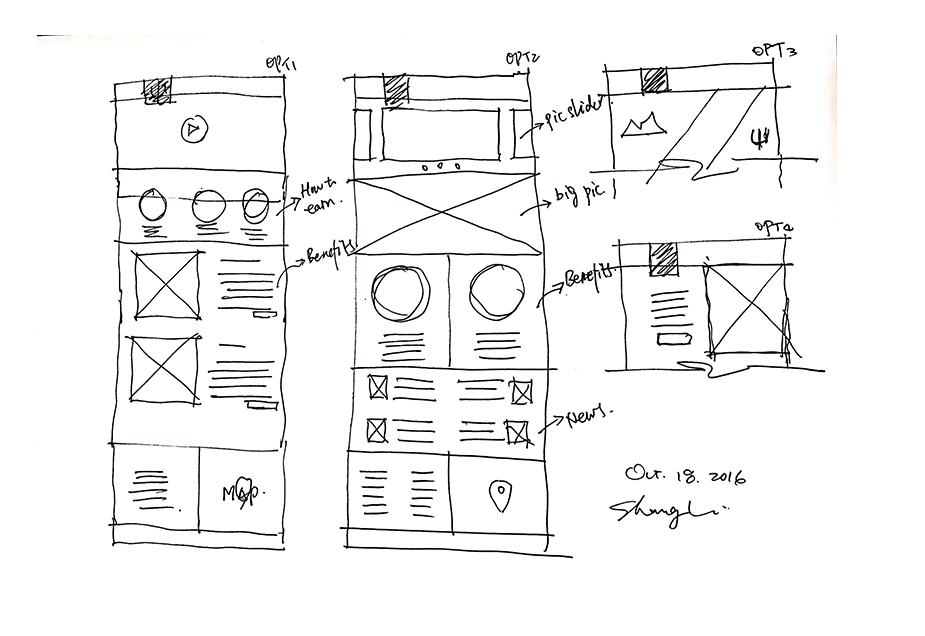 OPT1
How to
earn.
Benefits
MAP.
OPT2
pic slider
big pic
Benefits.
News.
OPT3
OPT4
Oct. 18. 2016